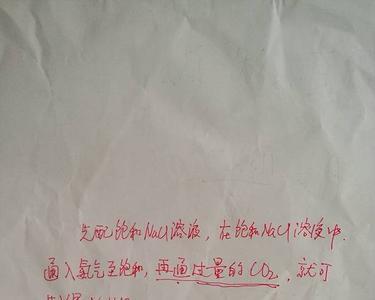 先配饱和NaCl溶液，在饱和NaCl溶液中.
通入氨气至饱和，再通过量的CO2，就可